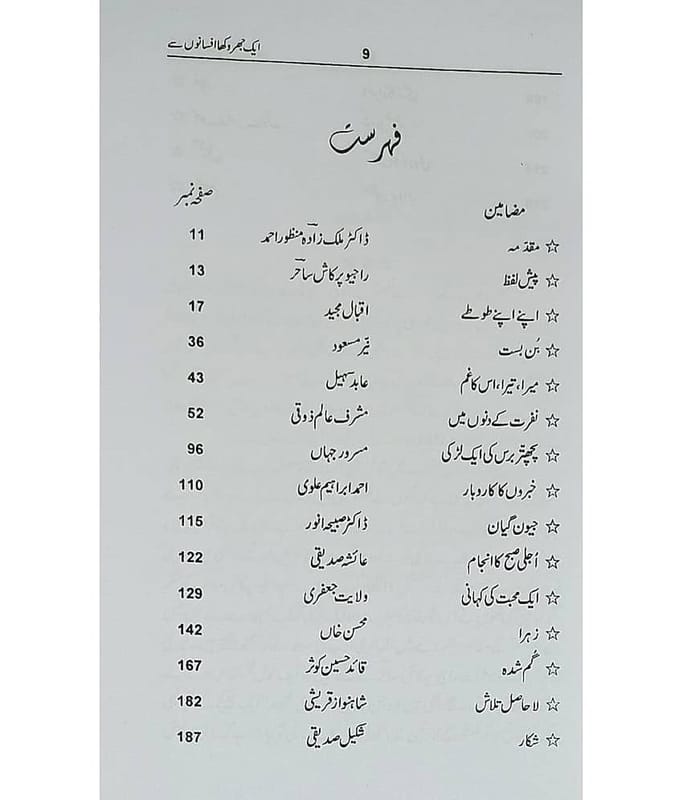 ایک جھروکھا افسانوں سے 9
فہرست
مضامین صفحہ نمبر
☆ مقدمہ ڈاکٹر ملک زادہ منظور احمد 11
☆ پیش لفظ راجیو پرکاش ساحر 13
☆ اپنے اپنے طوطے اقبال مجید 17
☆ بُن بست نیّر مسعود 36
☆ میرا، تیرا، اس کا غم عابد سہیل 43
☆ نفرت کے دنوں میں مشرف عالم ذوقی 52
☆ پچھتّر برس کی ایک لڑکی مسرور جہاں 96
☆ خبروں کا کاروبار احمد ابراہیم علوی 110
☆ جیون گیان ڈاکٹر صبیحہ انور 115
☆ اُجلی صبح کا انجام عائشہ صدیقی 122
☆ ایک محبت کی کہانی ولایت جعفری 129
☆ زہرا محسن خاں 142
☆ گم شدہ قائد حسین کوثر 167
☆ لاحاصل تلاش شاہنواز قریشی 182
☆ شکار شکیل صدیقی 187